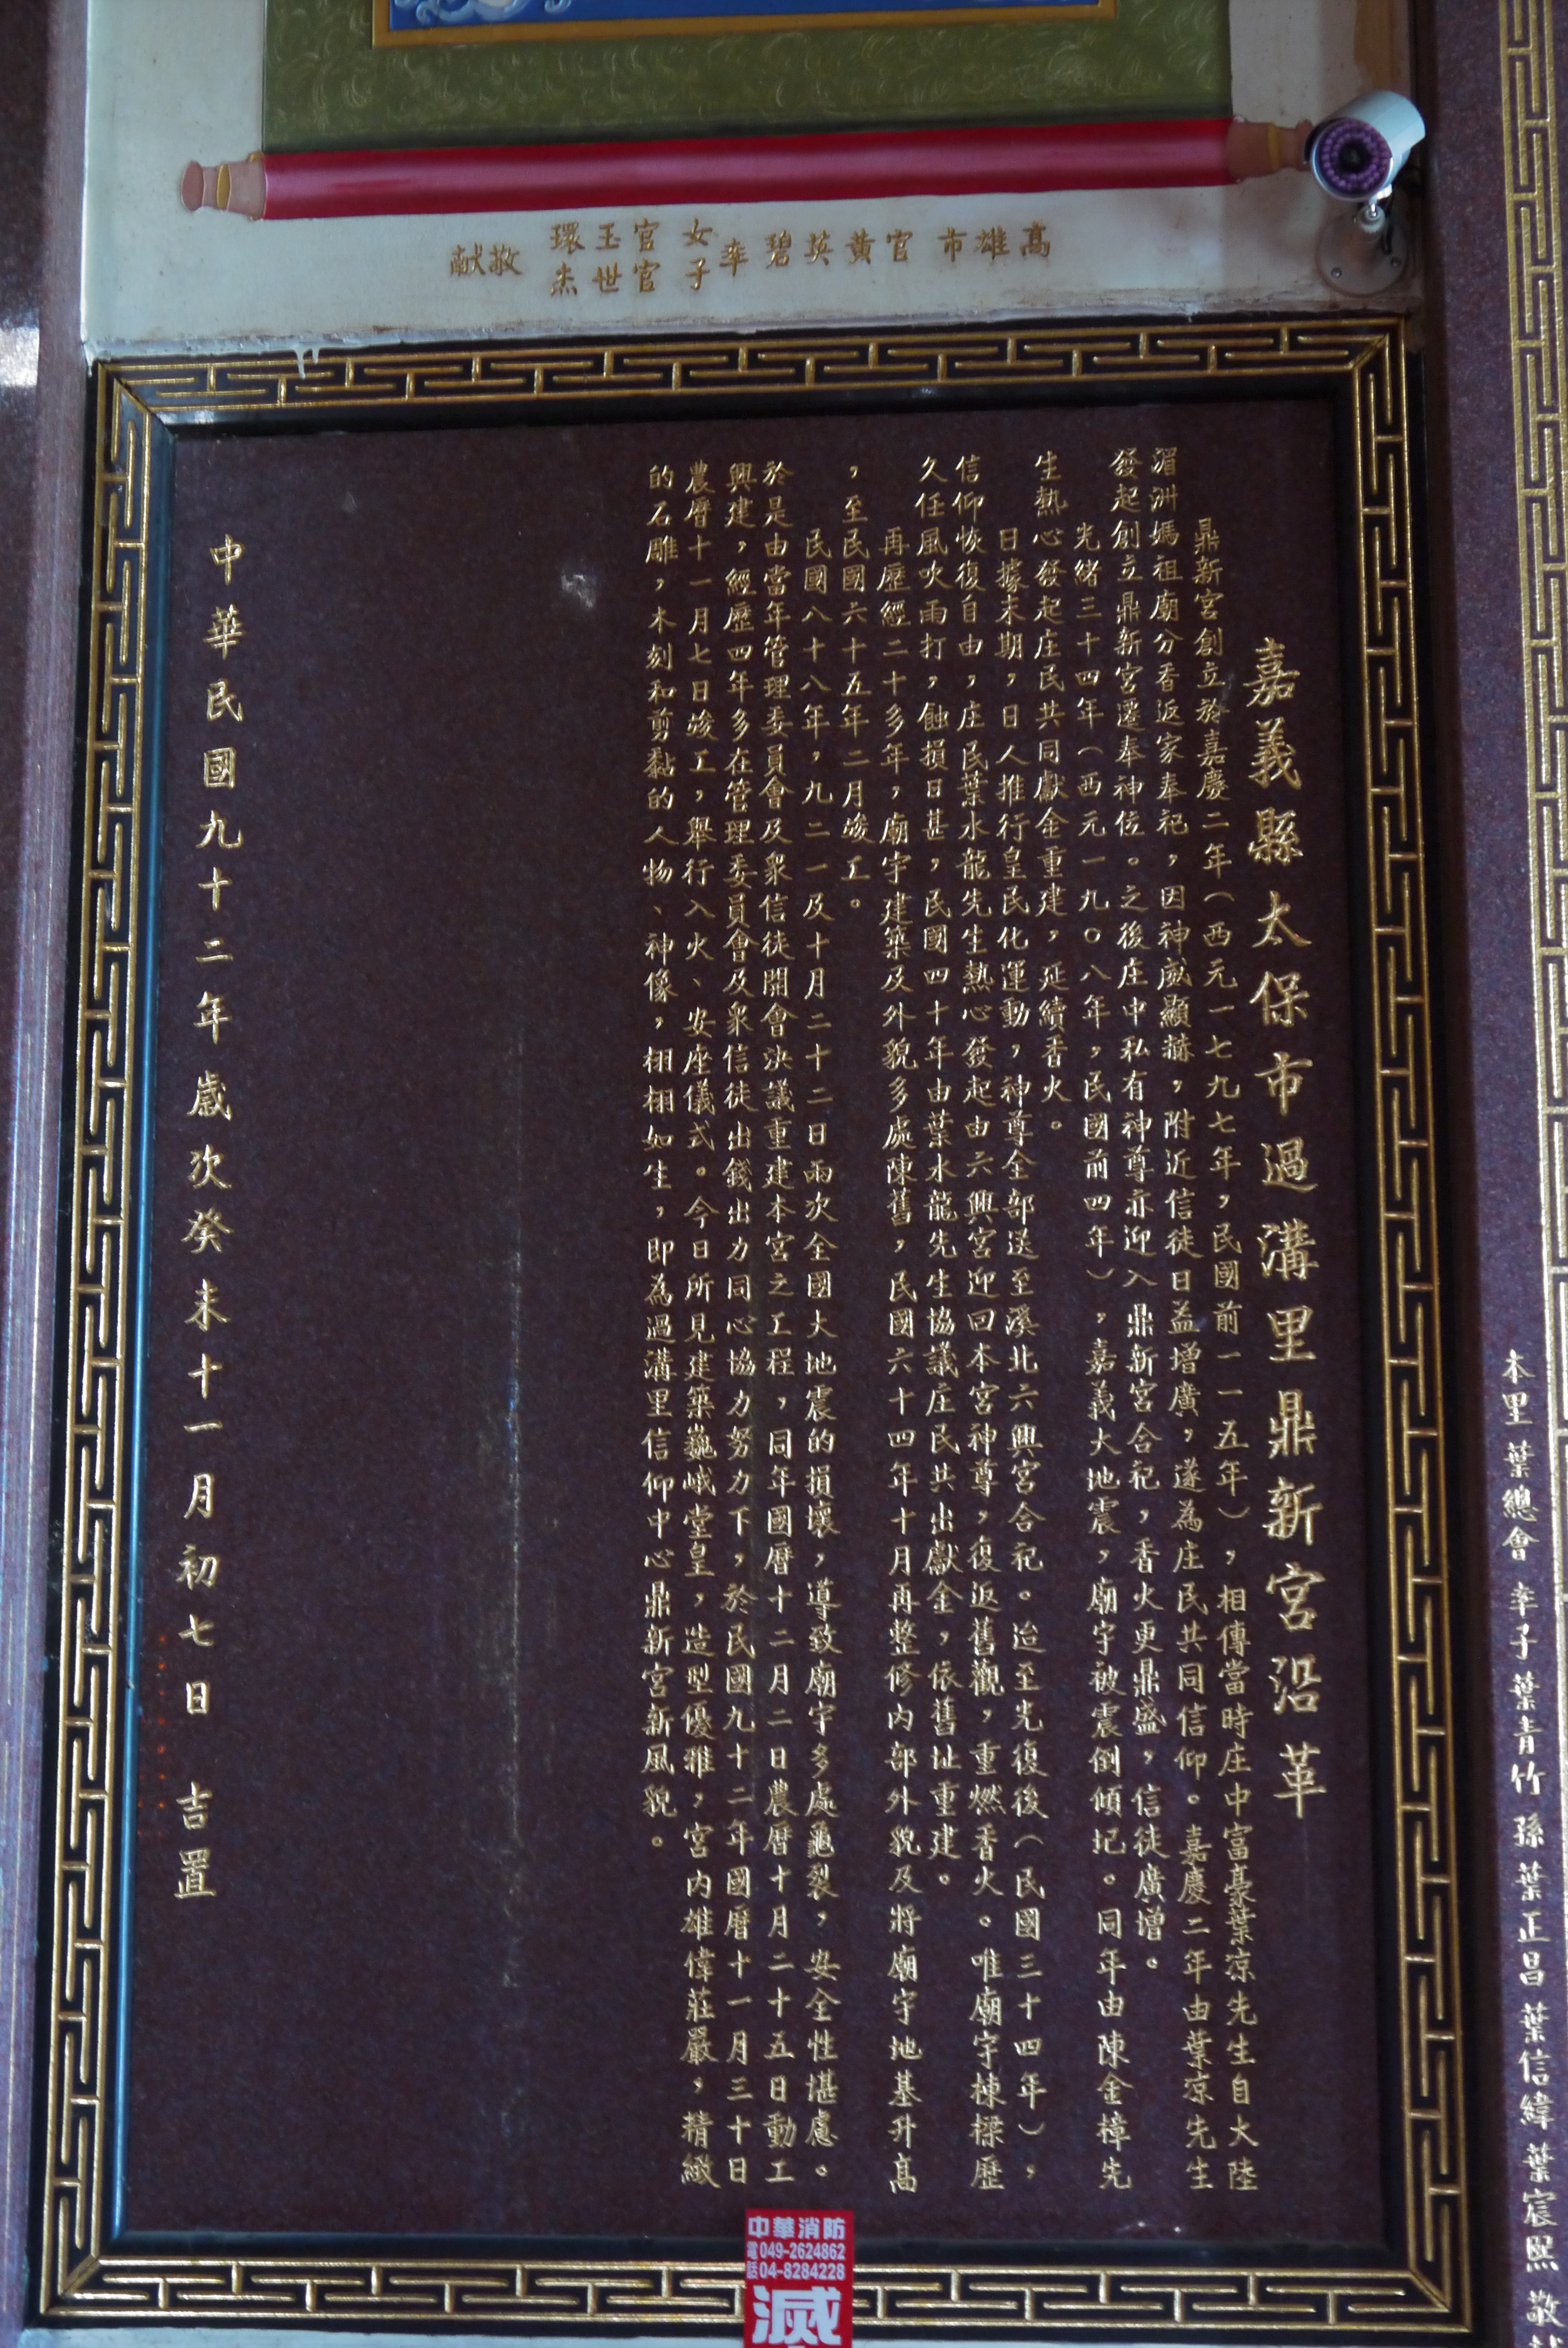 高雄市官黃英碧率女官玉環敬献
子官世杰
嘉義縣太保市過溝里鼎新宮沿革
鼎新宮創立於嘉慶二年（西元一七九七年，民國前一一五年），相傳當時庄中富豪葉凉先生自大陸
湄洲媽祖廟分香返家奉祀，因神威顯赫，附近信徒日益增廣，遂為庄民共同信仰。嘉慶二年由葉凉先生
發起創立鼎新宮遷奉神位。之後庄中私有神尊亦迎入鼎新宮合祀，香火更鼎盛，信徒廣增。
光緒三十四年（西元一九〇八年，民國前四年），嘉義大地震，廟宇被震倒傾圮。同年由陳金樟先
生熱心發起庄民共同獻金重建，延續香火。
日據末期，日人推行皇民化運動，神尊全部送至溪北六興宮合祀。迨至光復後（民國三十四年），
信仰恢復自由，庄民葉水龍先生熱心發起由六興宮迎回本宮神尊，復返舊觀，重燃香火。唯廟宇棟樑歷
久任風吹雨打，蝕損日甚，民國四十年由葉水龍先生協議庄民共出獻金，依舊址重建。
再歷經二十多年，廟宇建築及外貌多處陳舊，民國六十四年十月再整修內部外貌及將廟宇地基升高
，至民國六十五年二月竣工。
民國八十八年，九二一及十月二十二日兩次全國大地震的損壞，導致廟宇多處龜裂，安全性堪慮。
於是由當年管理委員會及眾信徒開會決議重建本宮之工程，同年國曆十二月二日農曆十月二十五日動工
興建，經歷四年多在管理委員會及眾信徒出錢出力同心協力努力下，於民國九十二年國曆十一月三十日
農曆十一月七日竣工，舉行入火、安座儀式。今日所見建築巍峨堂皇，造型優雅，宮內雄偉莊嚴，精緻
的石雕，木刻和剪黏的人物、神像，栩栩如生，即為過溝里信仰中心鼎新宮新風貌。
中華民國九十二年歲次癸未十一月初七日 吉置
本里葉總會 率子葉青竹 孫葉正昌 葉信緯 葉宸熙 敬献
中華消防
電話049-2624862
04-8284228
滅